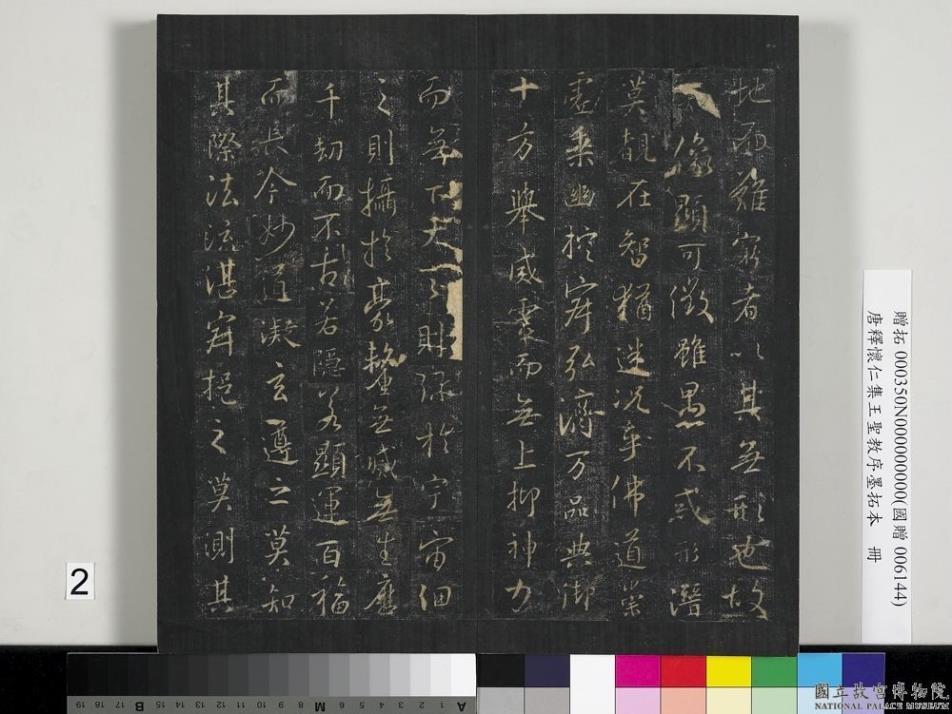 地而難窮者以其無形也故
像顯可徵雖愚不惑形潛
莫覩在智猶迷況乎佛道崇
虛乘幽控寂弘濟万品典御
十方舉威靈而無上抑神力
而無下大之則彌於宇宙細
之則攝於豪釐無滅無生歷
千劫而不古若隱若顯運百福
而長今妙道凝玄遵之莫知
其際法流湛寂挹之莫測其
贈拓 000350N000000000(國贈 006144)
唐釋懷仁集王聖教序墨拓本 冊
2
A 1 2 3 4 5 6 M 8 9 10 11 12 13 14 15 B 17 18 19
國立故宮博物院
NATIONAL PALACE MUSEUM